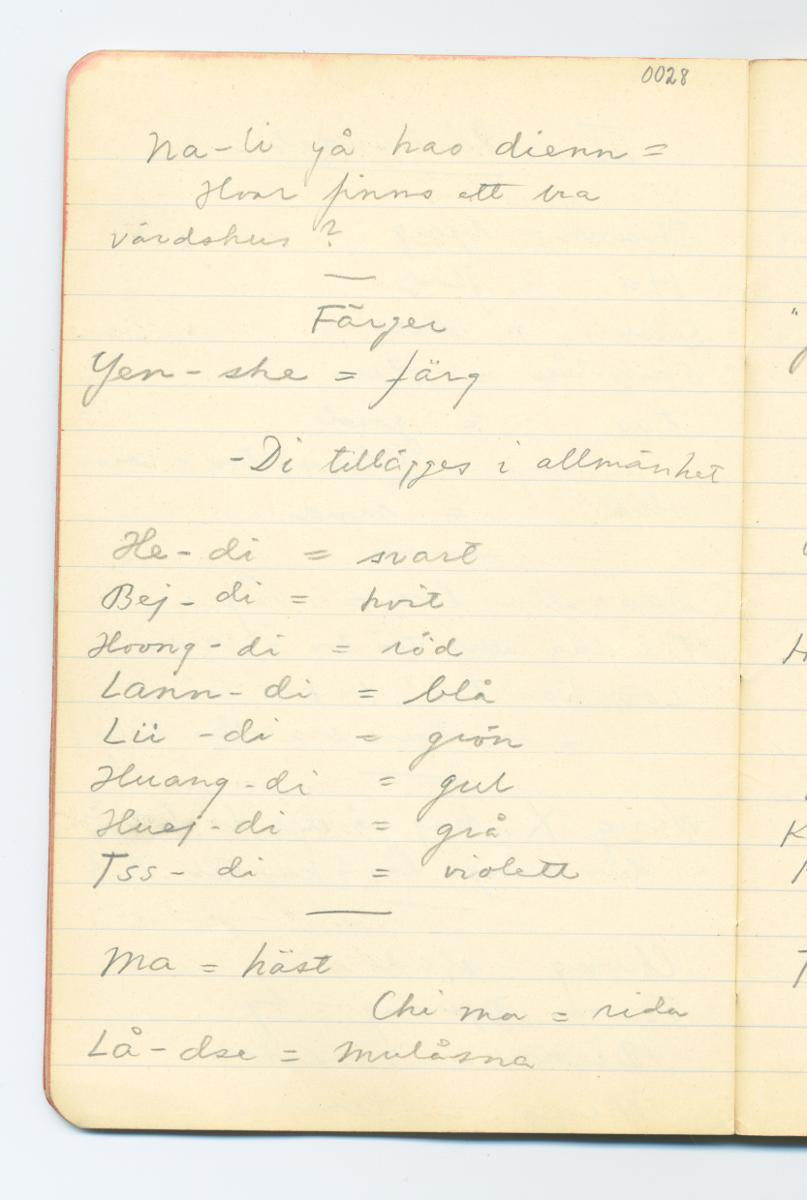 0028
Na-li yå hao dienn =
Hvar finns ett bra
värdshus ?
Färger
Yen-she = färg
-Di tillägges i allmänhet
He-di = svart
Bej-di = hvit
Hoong-di = röd
Lann-di = blå
Lü -di = grön
Huang-di = gul
Huej-di = grå
Tss-di = violett
Ma = häst
Chi ma = rida
Lå-dse = mulåsna